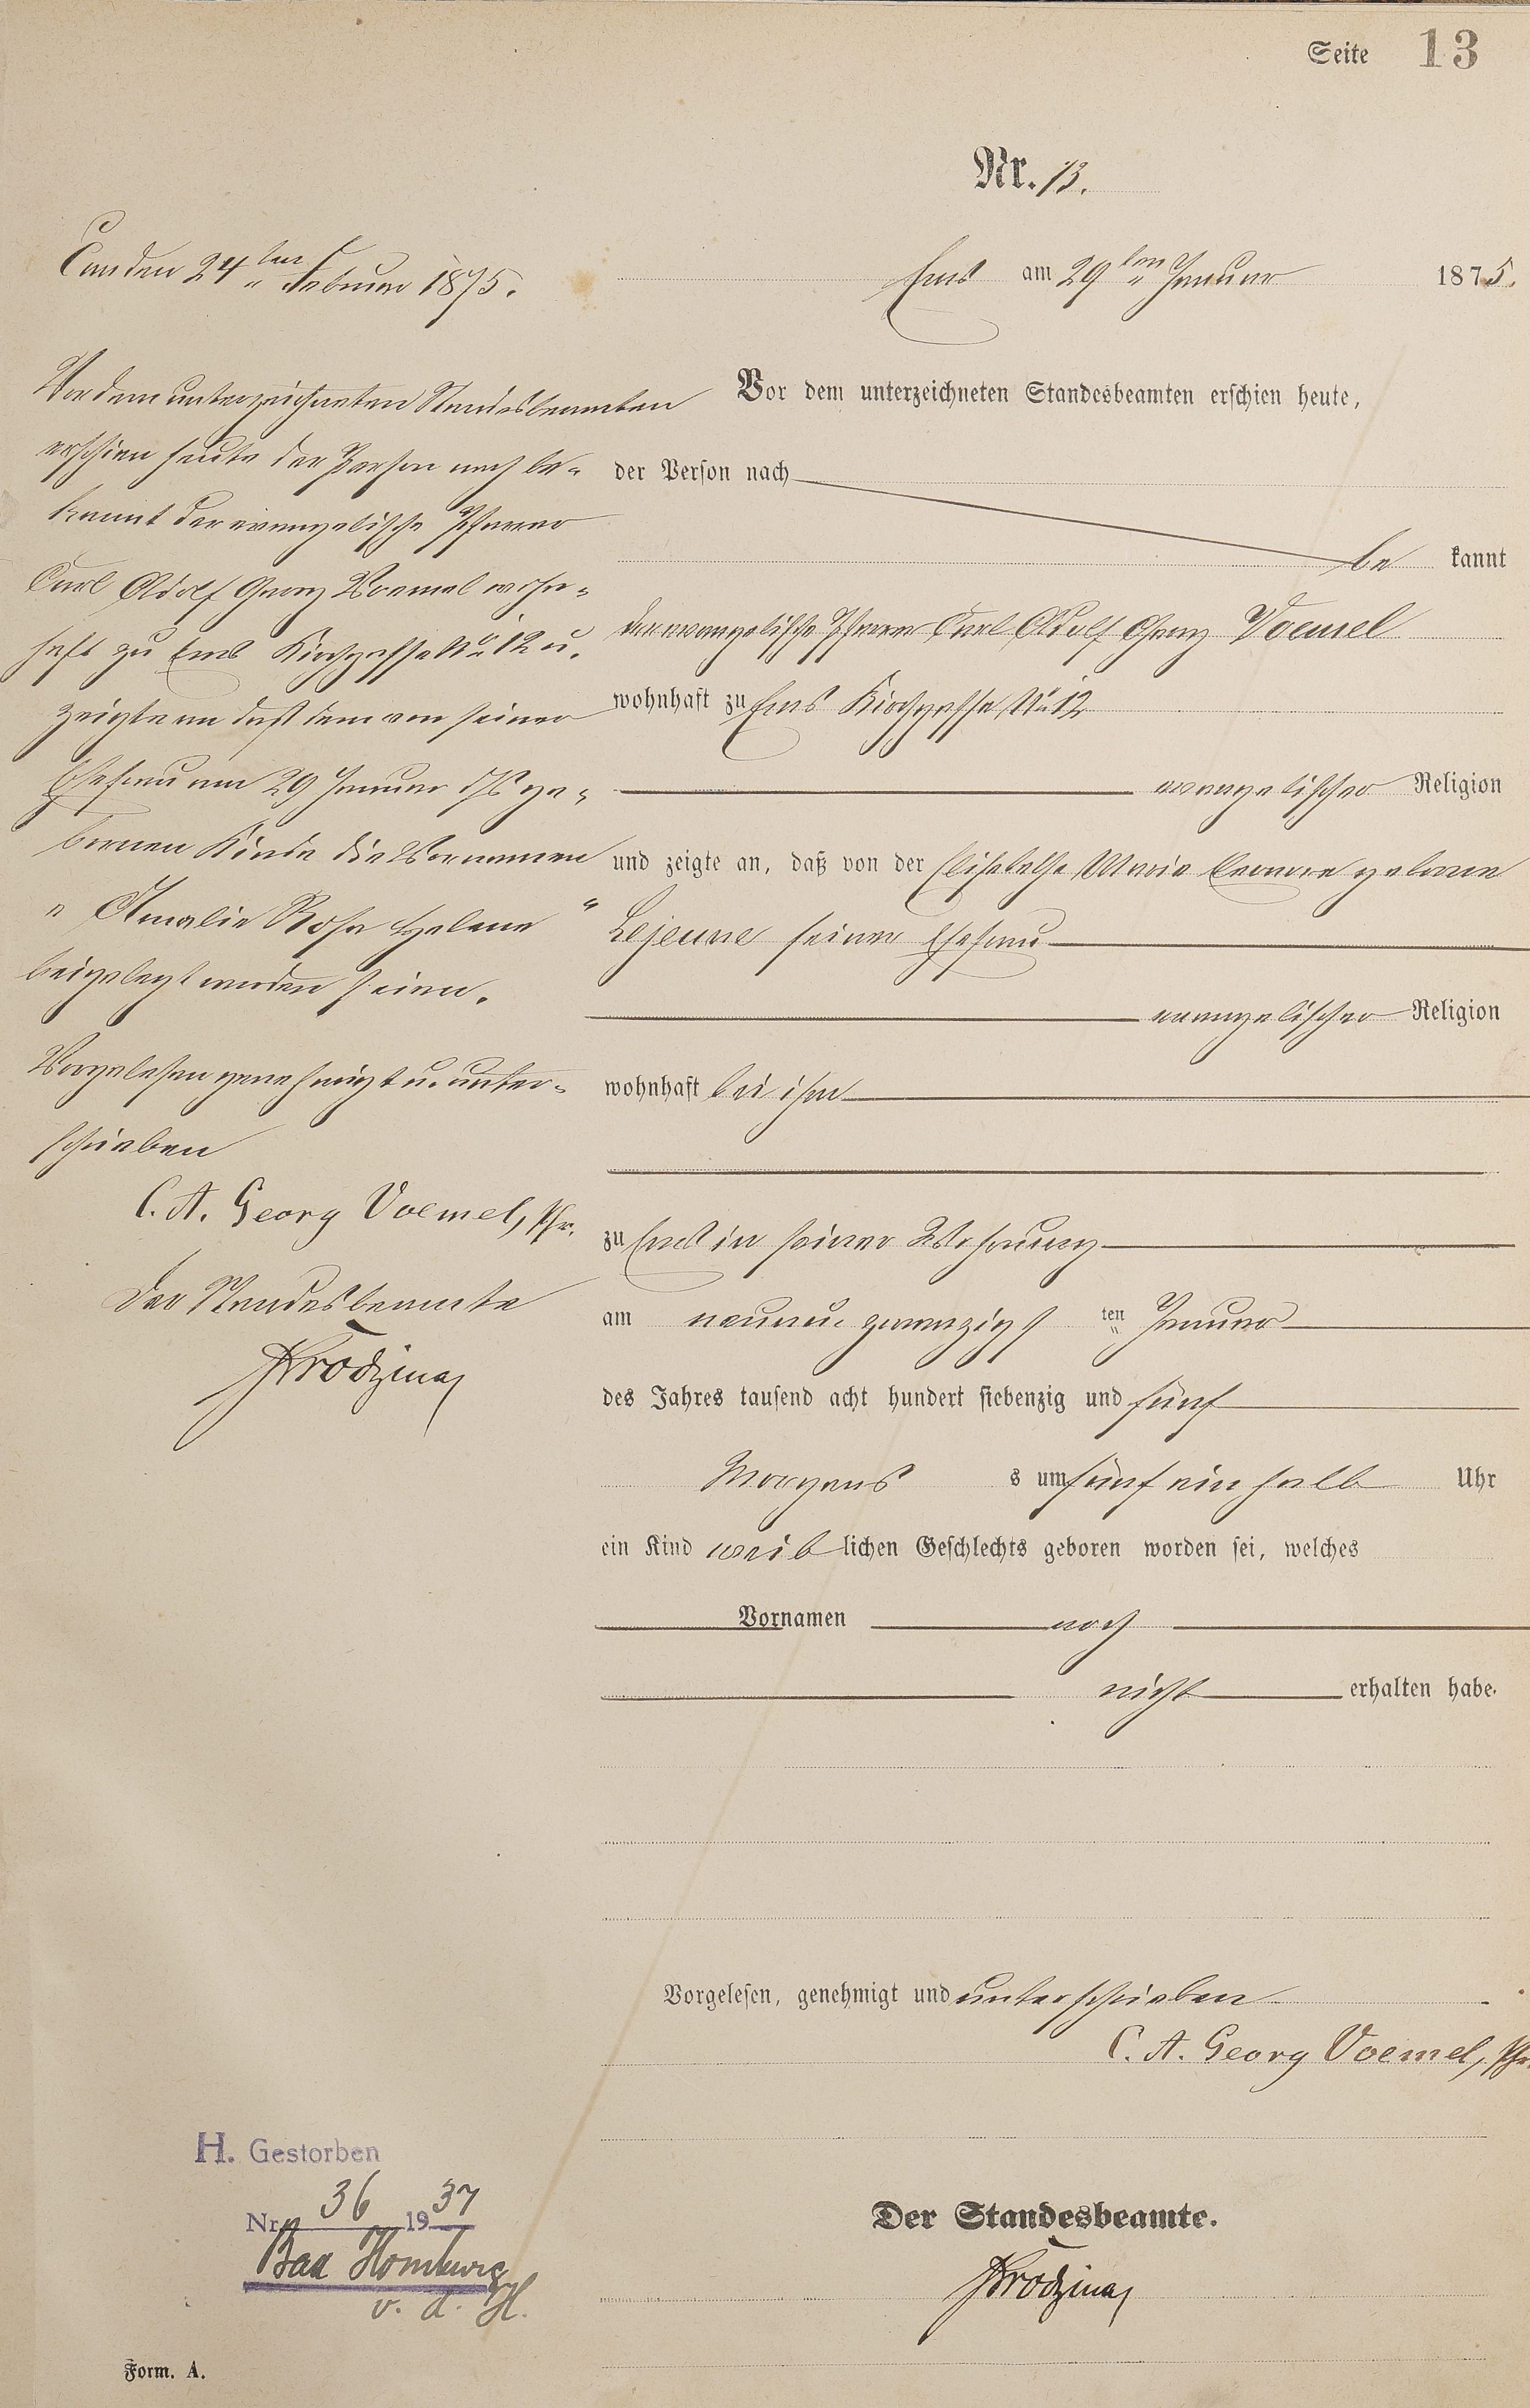 Seite 13
Nr. 13.
Ems am 29ten Januar 1875.
Vor dem unterzeichneten Standesbeamten erschien heute,
der Person nach
be kannt
der evangelische Pfarrer Carl Adolf Georg Voemel
wohnhaft zu Ems Kirchgasse No 12
evangelischer Religion
und zeigte an, daß von der Elisabethe Marie Leonore geborene
Lejeune seiner Ehefrau
evangelischer Religion
wohnhaft bei ihm
zu Ems in seiner Wohnung
am neunu. zwanzigs ten Januar
des Jahres tausend acht hundert siebenzig und fünf
Morgens s um fünf ein halb Uhr
ein Kind weib lichen Geschlechts geboren worden sei, welches
Vornamen noch
nicht erhalten habe.
Vorgelesen, genehmigt und unterschrieben
C. A. Georg Voemel, Pfr.
Der Standesbeamte.
den 24ten Februar 1875.
Vor dem unterzeichneten Standesbeamten
erschien heute der Person nach be-
kannt der evangelische Pfarrer
Carl Adolf Georg Voemel wohn-
haft zu Ems Kirchgasse No 12 u.
zeigte an daß dem von seiner
Ehefrau am 29 Januar ds Js ge-
bornen Kinde die Vornamen
"Amalie Rosa Helene"
beigelegt worden seien.
Vorgelesen genehmigt u. unter-
schrieben
C. A. Georg Voemel, Pfr.
Der Standesbeamte
H. Gestorben
Nr. 36 1937
Bad Homburg
v. d. H.
Form. A.